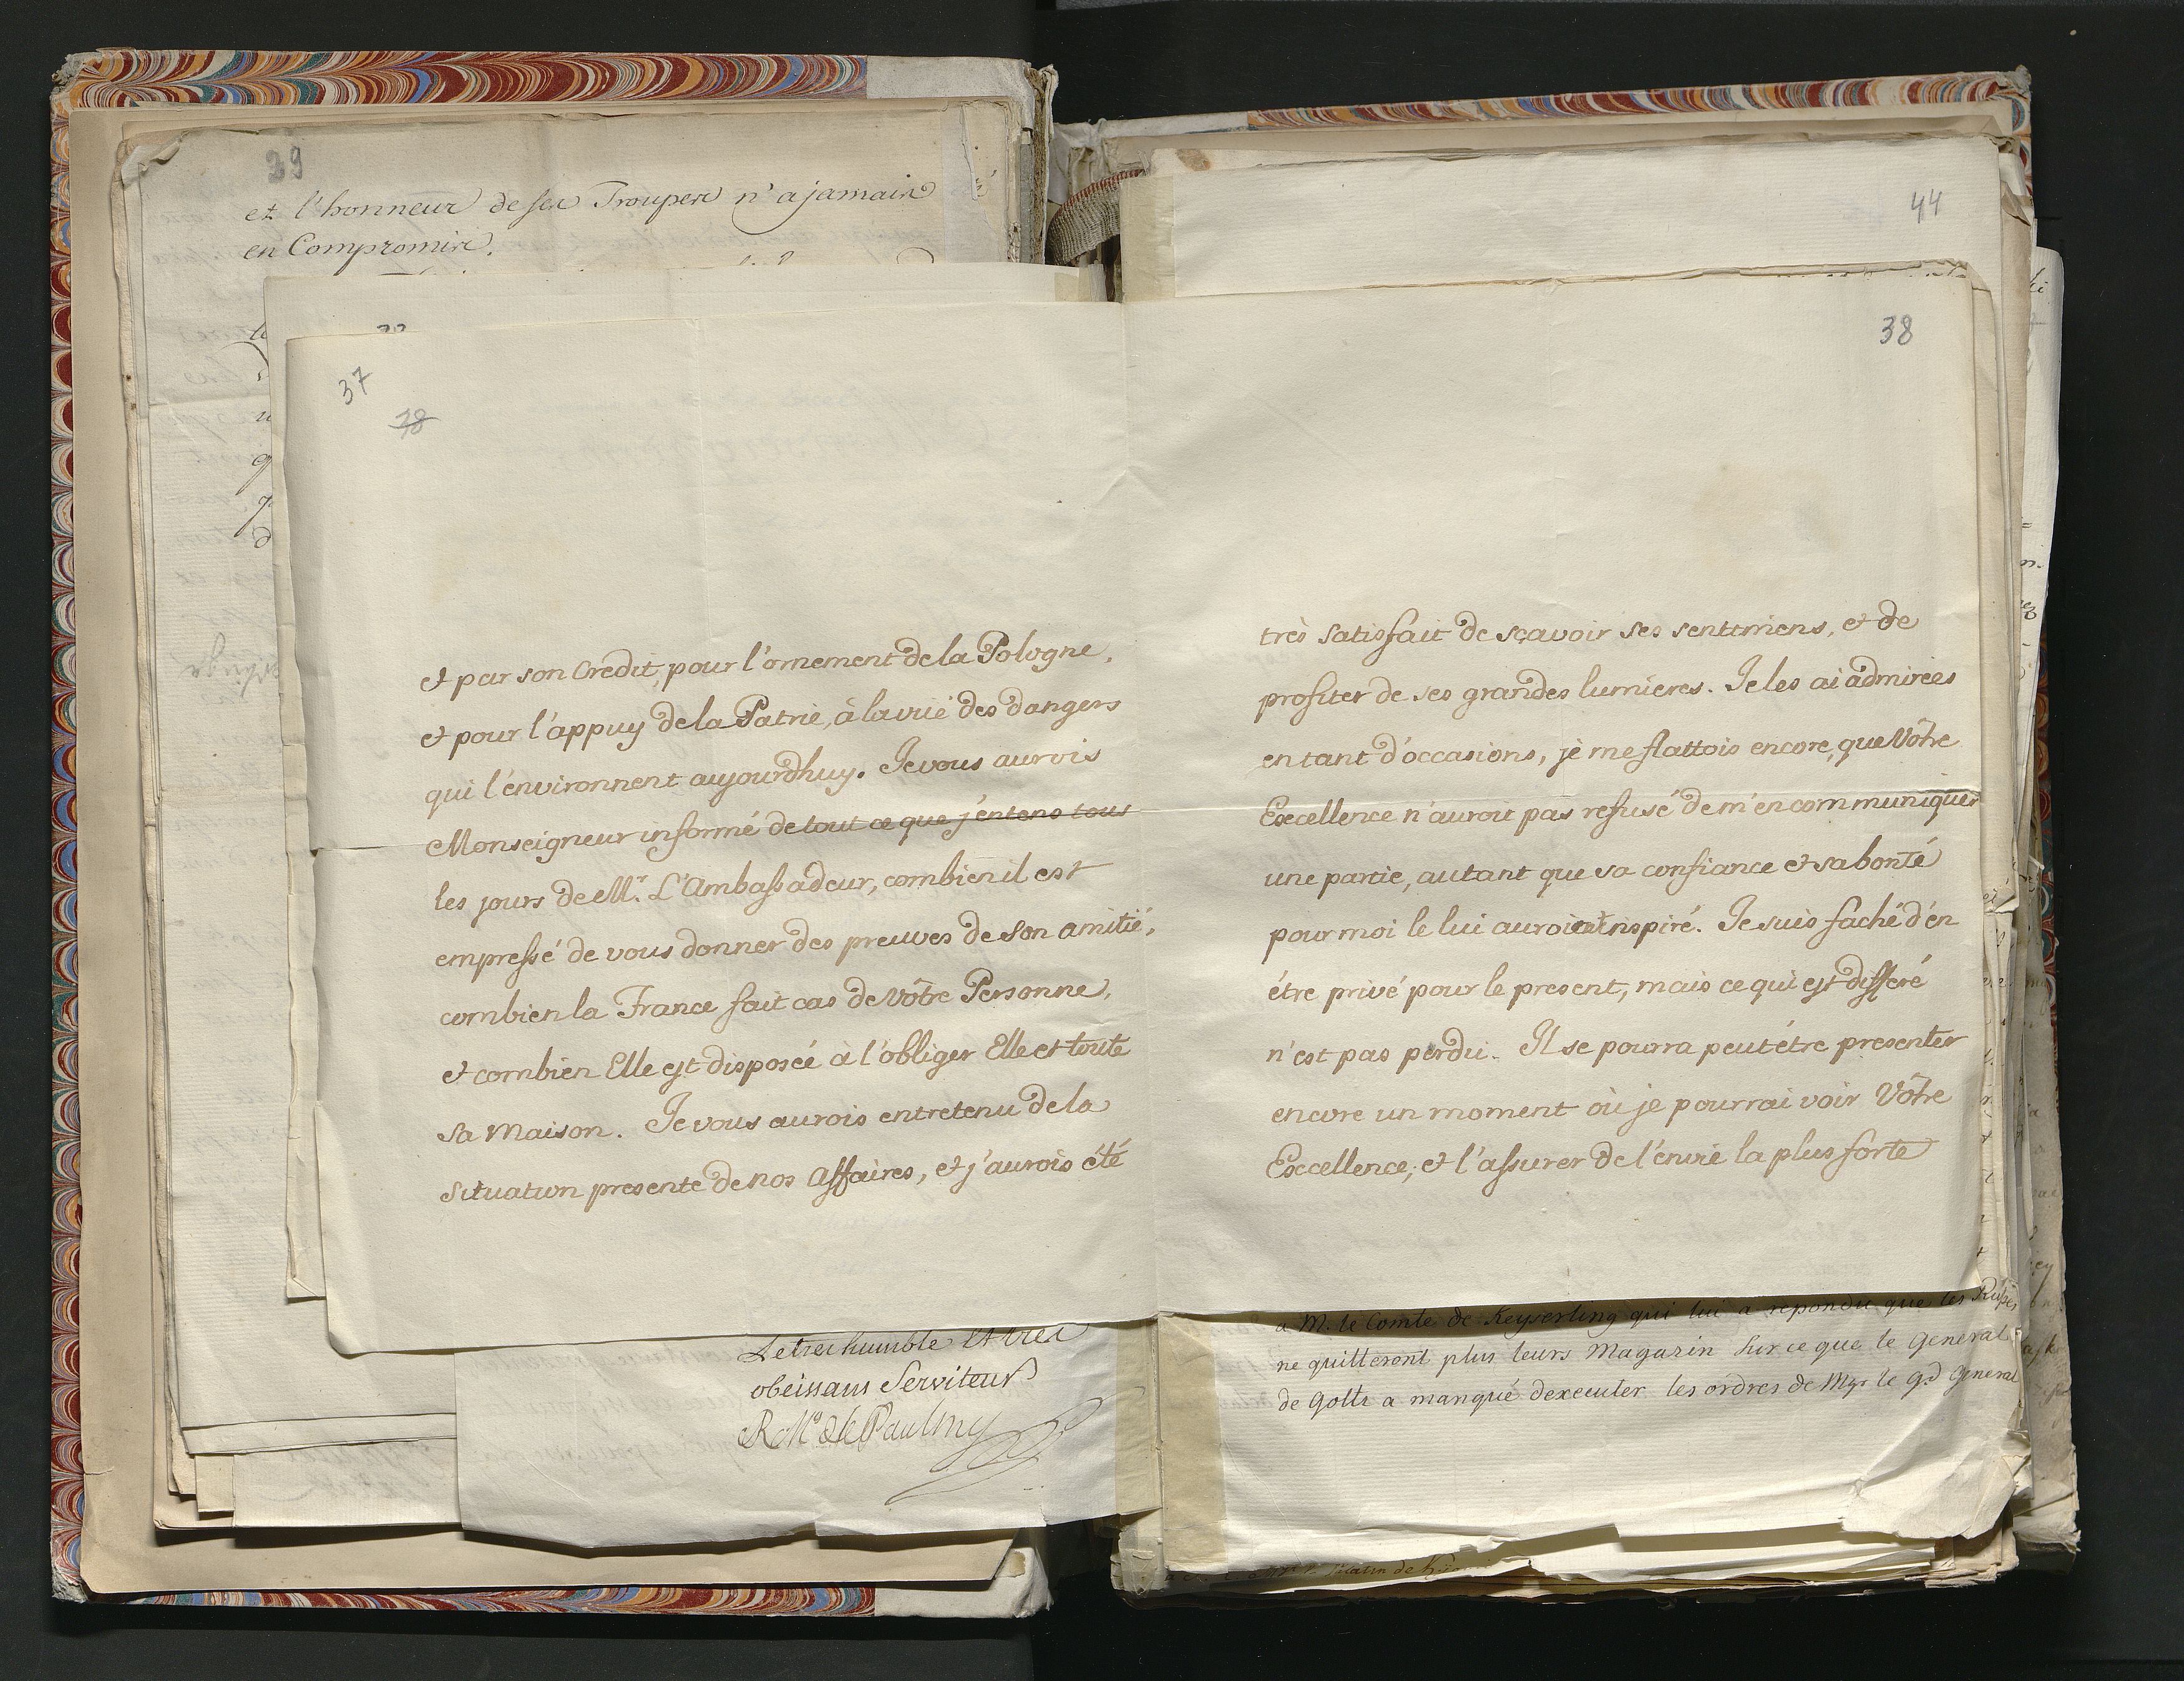 39
et l'honneur de ses Troupes n'a jamais
en Compromis.
37
38
et par son Credit, pour l'ornement de la Pologne,
et pour l'appuy de la Patrie, à la vüe des dangers
qui l'environnent aujourdhuy. Je vous aurois
Monseigneur informé de tout ce que j'entens tous
les jours de Mr. L'Ambassadeur, combien il est
empressé de vous donner des preuves de son amitié,
combien la France fait cas de Vôtre Personne,
et combien Elle est disposée à l'obliger Elle et toute
sa Maison. Je vous aurois entretenu de la
situation presente de nos Affaires, et j'aurois été
Le tres humble et tres
obeissans Serviteur
R Mis de Paulmy
44
38
très satisfait de sçavoir ses sentimens, et de
profiter de ses grandes lumieres. Je les ai admirées
en tant d'occasions, je me flattois encore, que Vôtre
Excellence n'auroit pas refusé de m'en communiquer
une partie, autant que sa confiance et sa bonté
pour moi le lui auroient inspiré. Je suis faché d'en
étre privé pour le present, mais ce qui est différé
n'est pas perdu. Il se pourra peutétre presenter
encore un moment où je pourrai voir Vôtre
Excellence, et l'assurer de l'envie la plus forte
a M. le Comte de Keyserling qui lui a repondu que les Russes
ne quitteront plus leurs Magazin sur ce que le General
de Golts a manqué dexecuter les ordres de Mgr le gd General